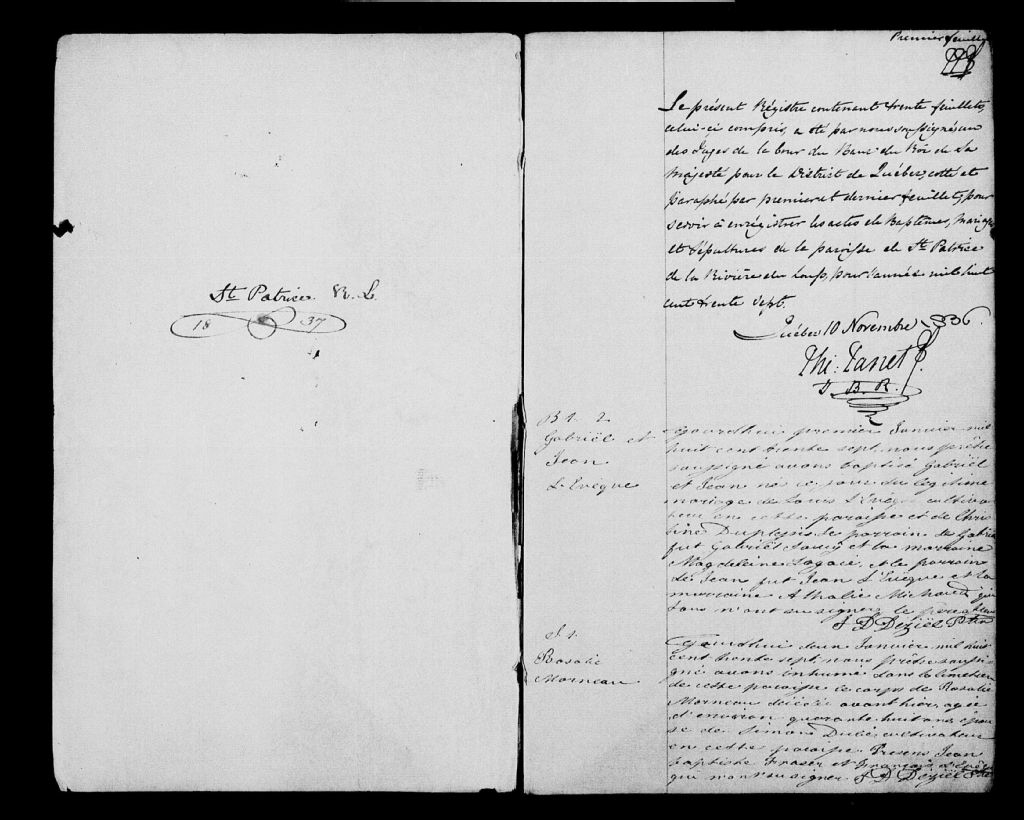 St. Patrice R. L.
18 37
Premier feuillet
Le présent Régistre contenant trente feuillets,
celui-ci compris, a été par nous soussigné, un
des Juges de la Cour du Banc du Roi de Sa
Majesté pour le District de Québec, cotté et
paraphé par premier et dernier feuillets, pour
servir à enrégistrer les actes de Baptêmes, Mariages
et Sépultures de la paroisse de St. Patrice
de la Rivière du Loup, pour l'année mil huit
cent trente sept.
Québec 10 Novembre 1836.
J. B. R.
B 1. 2
Gabriël et
Jean
L'Evêque
Aujourdhui premier Janvier mil
huit cent trente sept, nous prêtre
soussigné avons baptisé Gabriël
et Jean né ce jour du légitime
mariage de Louis L'Evêque cultiva
teur en cette paroisse et de Chris
tine Duplessis. Le parrain de Gabriel
fut Gabriël et la marraine
Magdeleine Lagacé, et le parrain
de Jean fut Jean L'Evêque et la
marraine Athalie Michaud qui
tous n'ont su signer le père absent
J D Déziël Ptre
S 1.
Rosalie
Morneau
Aujourdhui deux Janvier mil huit
cent trente sept, nous prêtre soussi
gné avons inhumé dans le cimetière
de cette paroisse le corps de Rosalie
Morneau décédée avant hier, agée
d'environ quarante huit ans épou
se de Simon Dubé cultivateur
en cette paroisse. Présens Jean
baptiste Fraser et François L'Evêque
qui n'ont su signer. J D Déziël Ptre